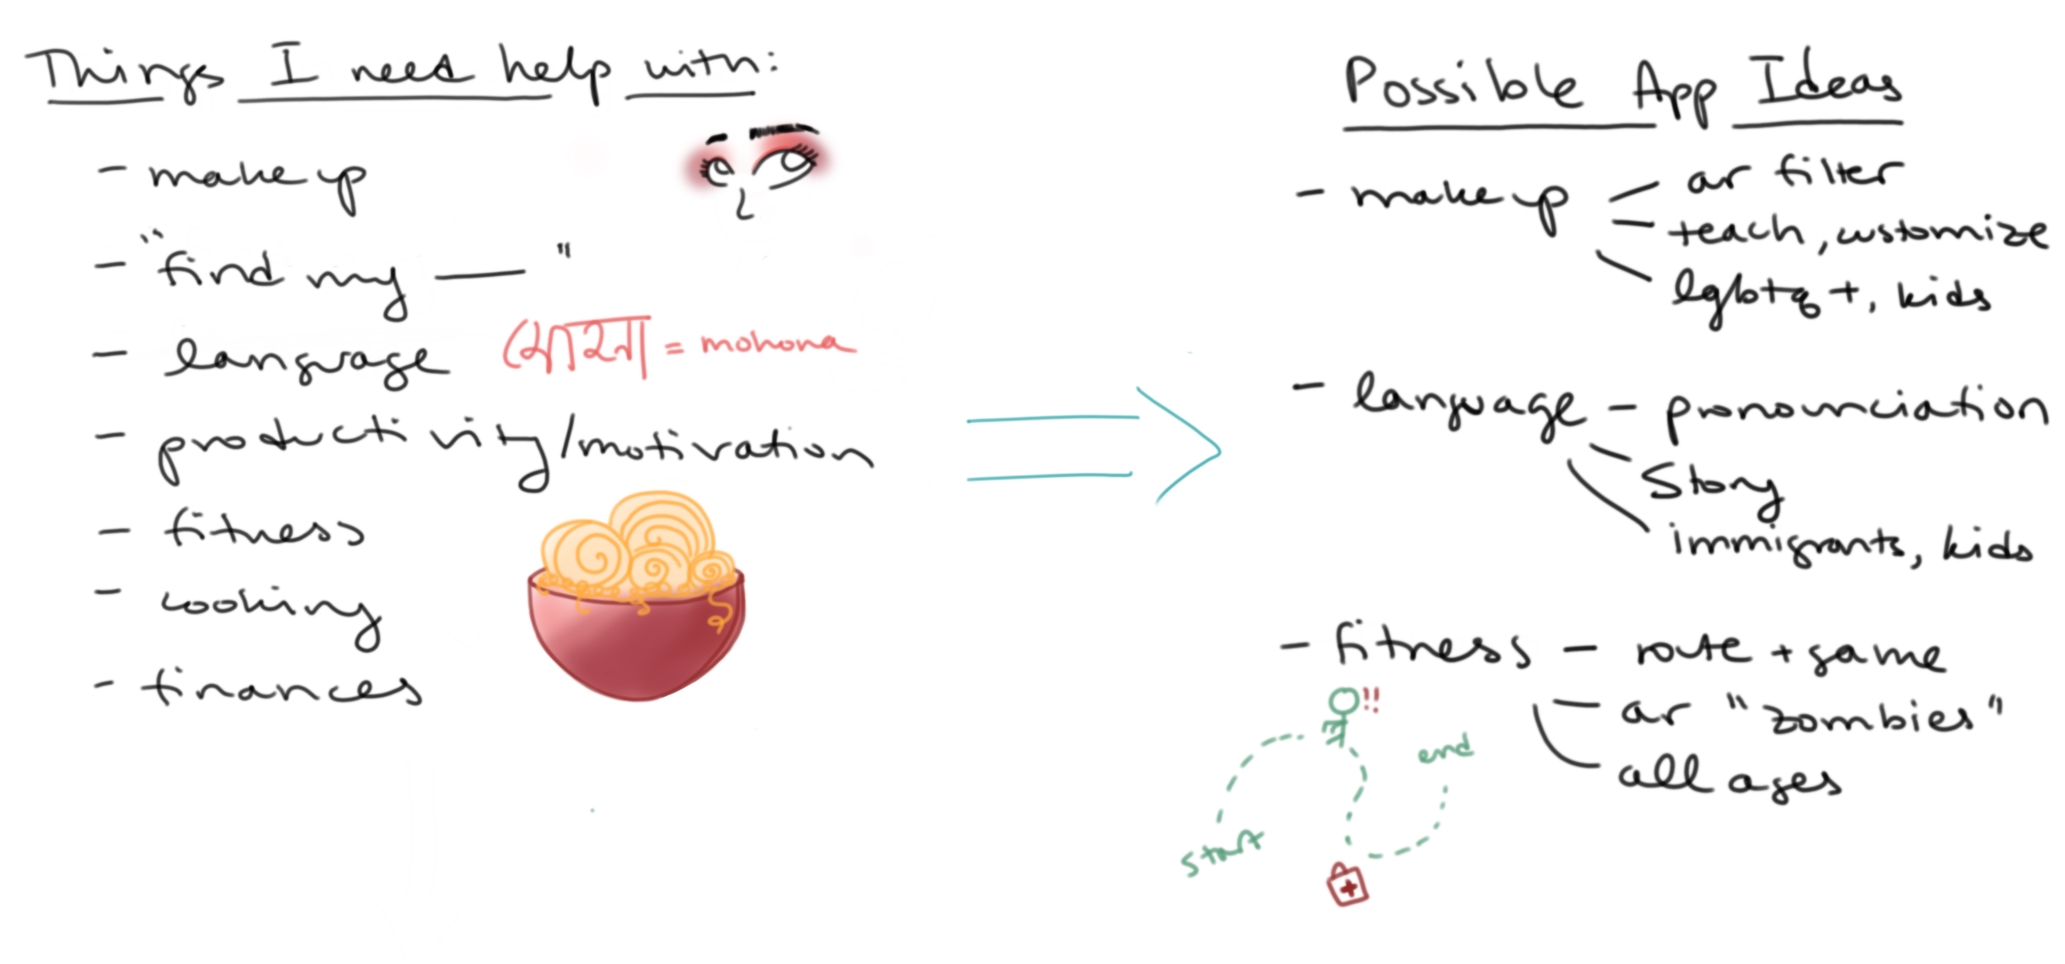 Things I need help with:
- make up
- "find my —"
- language মোহনা = mohona
- productivity/motivation
- fitness
- cooking
- finances
Possible App Ideas
- make up
- ar filter
- teach, customize
- lgbtq+, kids
- language - pronounciation
- Story
- immigrants, kids
- fitness - route + game
- ar "zombies"
- all ages
!!
start
end